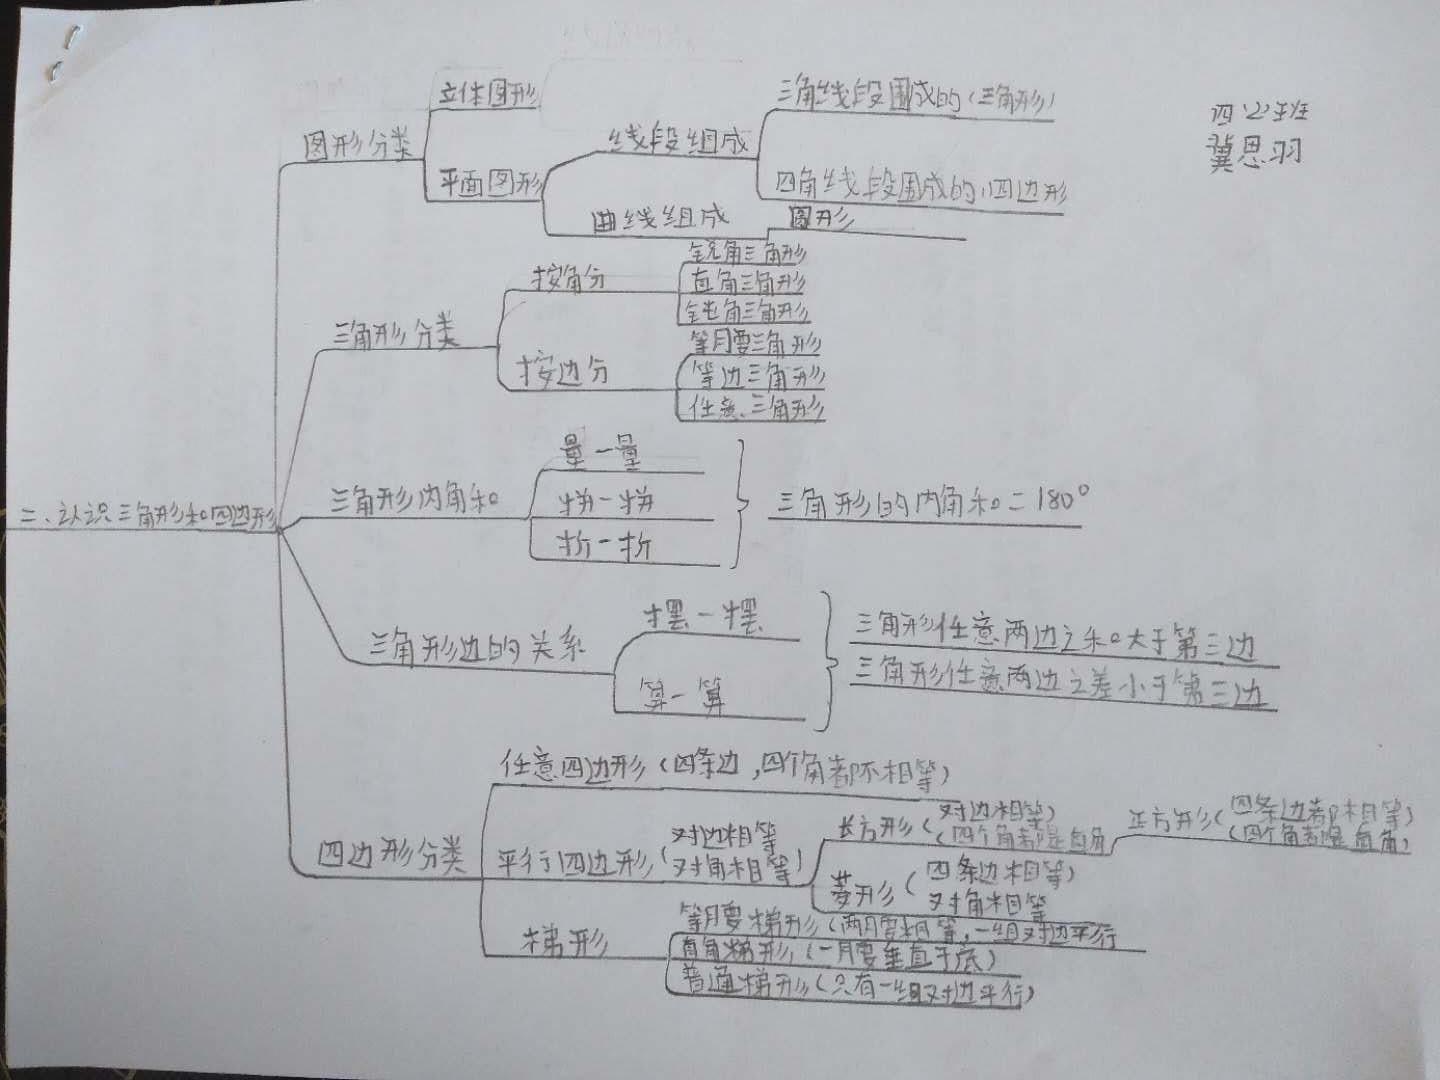 四(2)班
冀思羽
二、认识三角形和四边形
图形分类
立体图形
平面图形
线段组成
三角线段围成的(三角形)
四角线段围成的(四边形
曲线组成
圆形
三角形分类
按角分
锐角三角形
直角三角形
钝角三角形
按边分
等腰三角形
等边三角形
任意三角形
三角形内角和
量一量
拼一拼
折一折
三角形的内角和=180°
三角形边的关系
摆一摆
算一算
三角形任意两边之和大于第三边
三角形任意两边之差小于第三边
四边形分类
任意四边形(四条边,四个角都不相等)
平行四边形(对边相等
对角相等)
长方形(对边相等)
(四个角都是直角
正方形(四条边都相等)
(四个角都是直角)
菱形(四条边相等)
对角相等
梯形
等腰梯形(两腰相等,一组对边平行
直角梯形(一腰垂直于底)
普通梯形(只有一组对边平行)